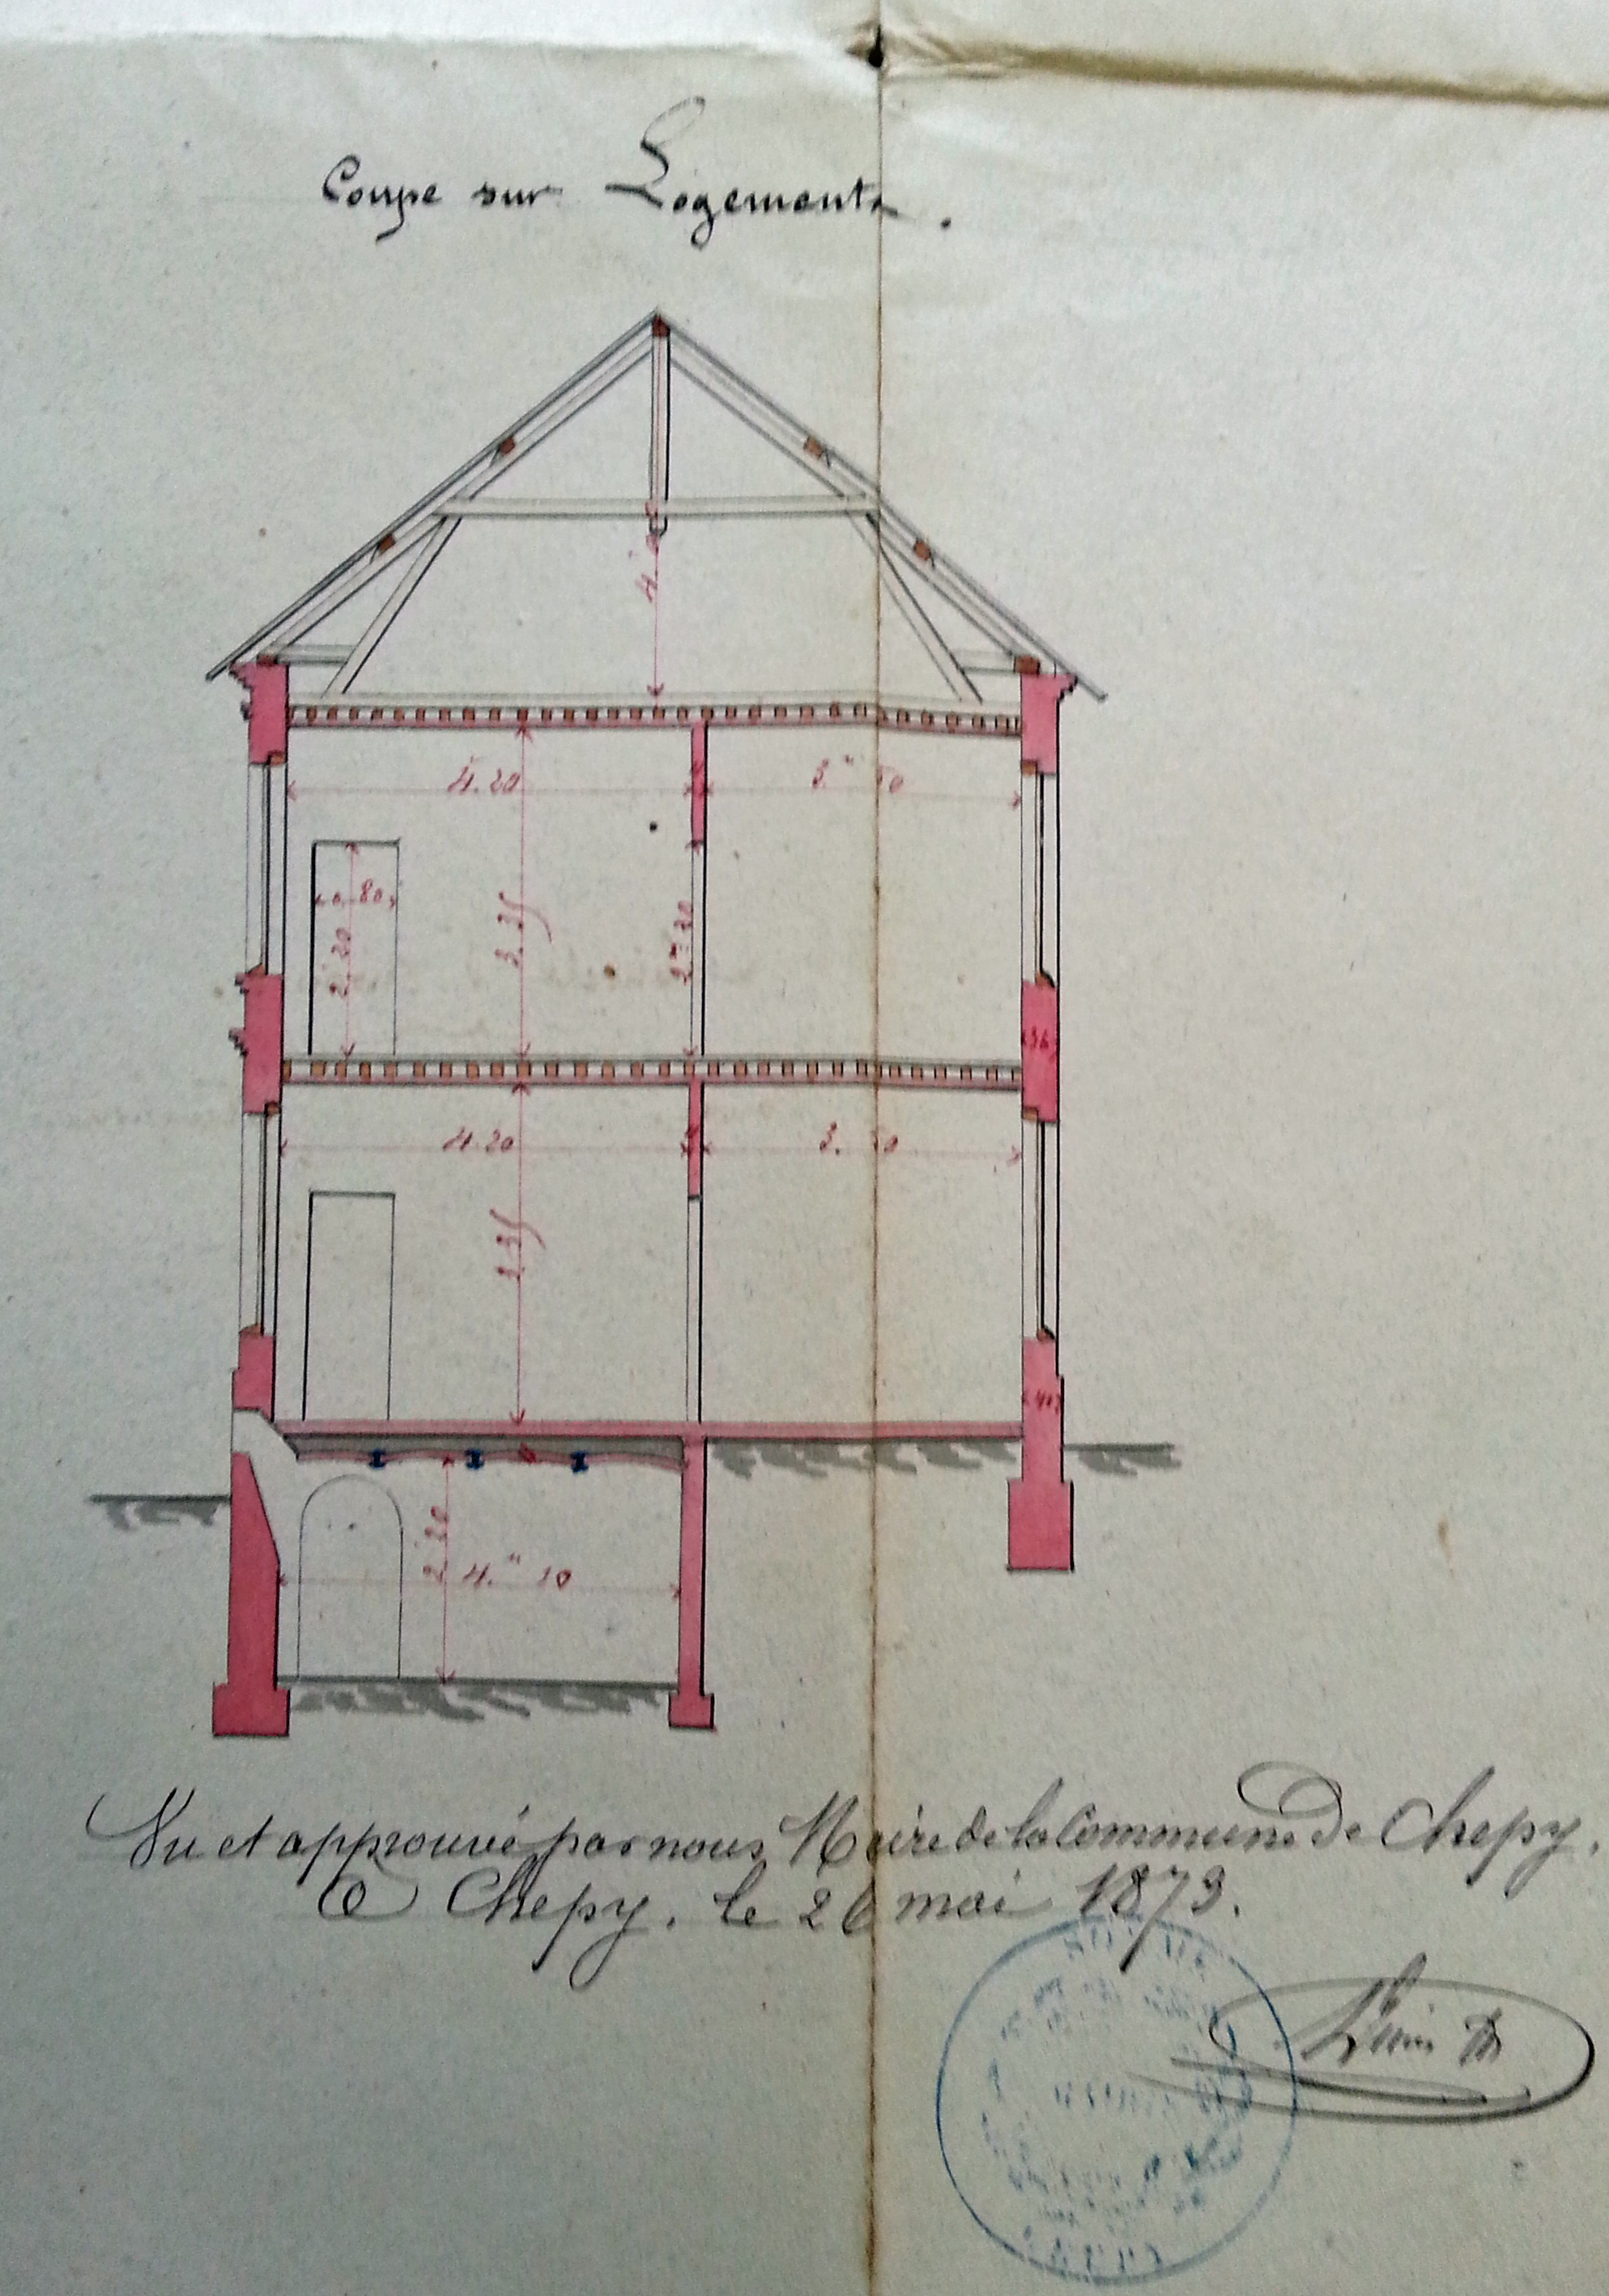 Coupe sur Logements.
4.
4.20
3.m 50
0.80
2.20
3.35
2m.20
36
4.20
3. 50
3.35
40
2.20
4.m 10
Vu et approuvé par nous Maire de la Commune de Chepy.
A Chepy. le 26 mai 1873.
SOMME